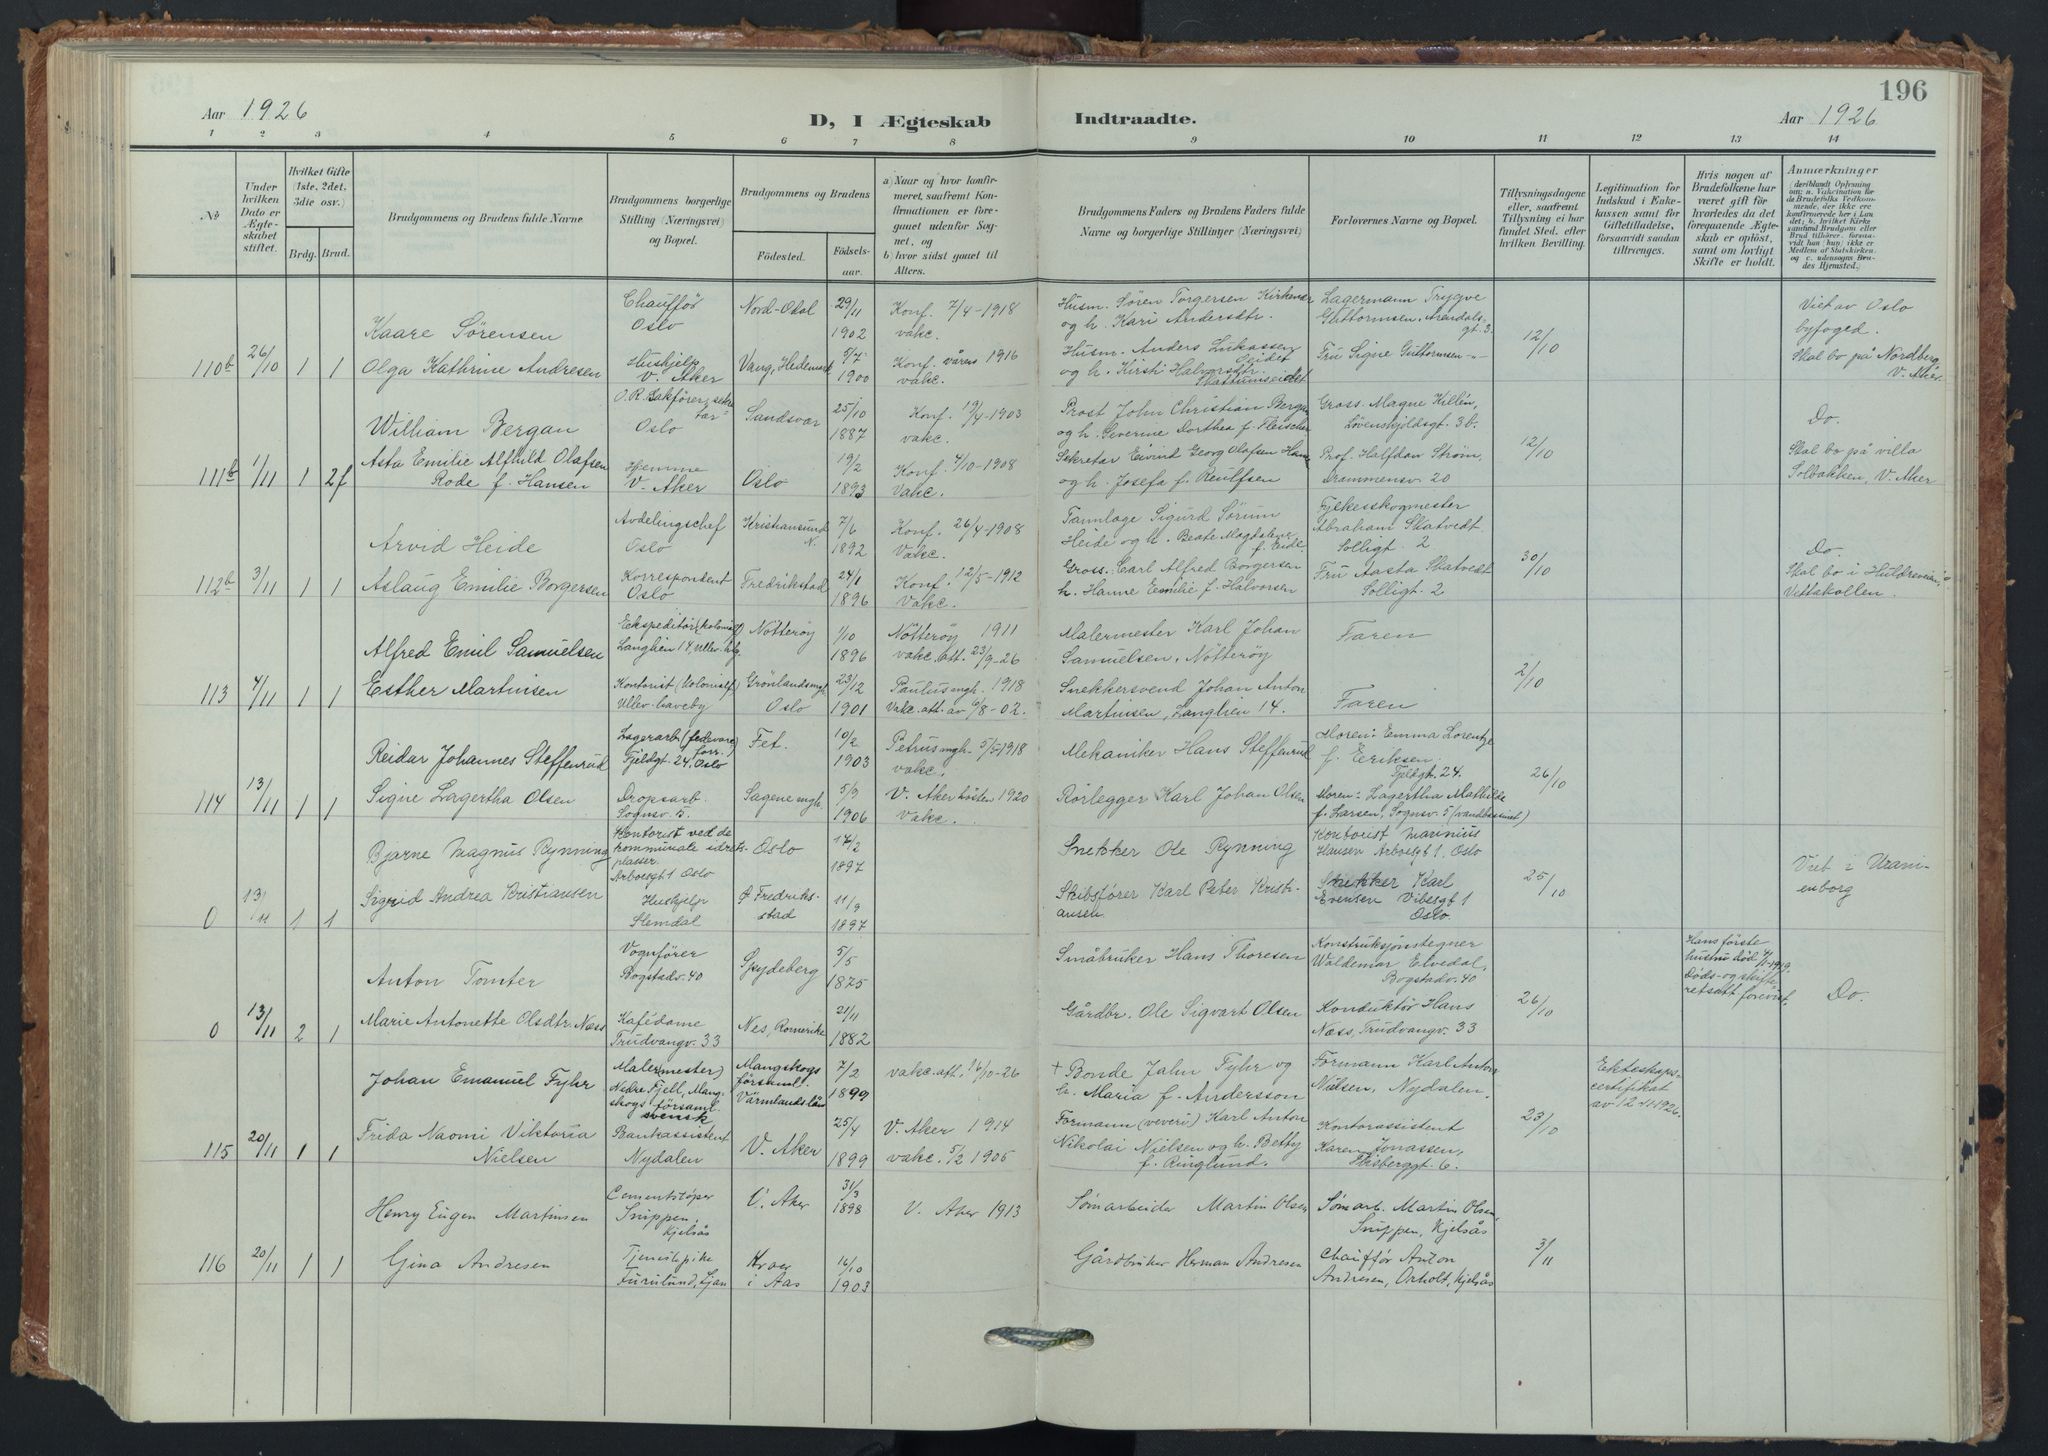 196
Aar 1926
D, I Ægteskab Indtraadte.
Aar 1926
1 2 3 4 5 6 7 8 9 10 11 12 13 14
No
Under hvilken Dato er Ægteskabet stiftet.
Hvilket Gifte (1ste, 2det, 3die osv.)
Brdg. Brud.
Brudgommens og Brudens fulde Navne
Brudgommens borgerlige Stilling (Næringsvei) og Bopæl.
Brudgommens og Brudens
Fødested. Fødselsaar.
a) Naar og hvor konfirmeret, saafremt Konfirmationen er foregaaet udenfor Sognet, og
b) hvor sidst gaaet til Alters.
Brudgommens Faders og Brudens Faders fulde Navne og borgerlige Stillinger (Næringsvei)
Forlovernes Navne og Bopæl.
Tillysningsdagene eller, saafremt Tillysning ei har fundet Sted, efter hvilken Bevilling.
Legitimation for Indskud i Enkekassen samt for Giftetilladelse, forsaavidt saadan tiltrænges.
Hvis nogen af Brudefolkene har været gift før hvorledes da det foregaaende Ægteskab er opløst, samt om lovligt Skifte er holdt.
Anmærkninger
(deriblandt Oplysning om: a. Vaccination for de Brudefolks Vedkommende, der ikke ere konfirmerede her i Landet; b. hvilket Kirkesamfund Brudgom eller Brud tilhører, forsaavidt han (hun) ikke er Medlem af Statskirken, og c. udensogns Brudes Hjemsted.)
Kaare Sørensen Chauffør Oslo Nord-Odal 29/11 1902 Konf. 7/4-1918 vakc. Husm. Søren Torgersen Kirkener og h. Kari Andersdtr. Lagermann Trygve Guttormsen, Arendalsgt. 3. Viet av Oslo byfoged.
110b 26/10 1 1 Olga Kathrine Andresen Hushjelp V. Aker Vang, Hedemark 5/7 1900 Konf. våren 1916 vakc. Husm. Anders Lukassen Seidet og h. Kirsti Halvorsdtr. Fru Signe Guttormsen -"- 12/10 Skal bo på Nordberg, V. Aker
William Bergan O.R. Sakfører, sekretær Oslo Sandsvær 25/10 1887 Konf. 19/4-1903 vakc. Prost John Christian Bergan og h. Severine Dorthea f. Fleischer Gross. Magne Killén, Løvenskjoldsgt. 3b. Do.
111b 1/11 1 2f Asta Emilie Alfhild Olafsen Rode f. Hansen Hjemme V. Aker Oslo 19/2 1893 Konf. 4/10-1908 Vakc. Sekretær Eivind Georg Olafsen Hansen og h. Josefa f. Reulfsen Prof. Halfdan Strøm, Drammensv. 20 12/10 Skal bo på villa Solbakken, V. Aker
Arvid Heide Avdelingschef Oslo Kristiansund N. 7/6 1892 Konf. 26/4-1908 Vakc. Tannlæge Sigurd Sørum Heide og h. Beate Magdalene f. Eide Fylkesskogmester Abraham Skatvedt Solligt. 2 Do.
112b 3/11 1 1 Aslaug Emilie Borgersen Korrespondent Oslo Fredrikstad 24/1 1896 Konf. 12/5-1912 Vakc. Gross. Carl Alfred Borgersen h. Hanne Emilie f. Halvorsen Fru Aasta Skatvedt Solligt. 2 30/10 Skal bo i Huldreveien, Vettakollen.
Alfred Emil Samuelsen Ekspeditør (kolonialf) Langlien 14, Ullev. hg. Nøtterøy 1/10 1896 Nøtterøy 1911 vakc. att. 23/9-26 Malermester Karl Johan Samuelsen, Nøtterøy Faren
113 4/11 1 1 Esther Martinsen Kontorist (Kolonialf) Ullev. haveby Grønlandsmgh. Oslo 23/12 1901 Paulusmgh. 1918 Vakc. att. av 6/8-02. Snekkersvend Johan Anton Martinsen, Langlien 14. Faren 2/10
Reidar Johannes Steffenrud Lagerarb. (fedevareforr.) Fjeldgt. 24, Oslo Fet. 10/2 1903 Petrusmgh. 5/5-1918 vakc. Mekaniker Hans Steffenrud Moren: Emma Lorentze f. Eeriksen. Fjeldgt. 24.
114 13/11 1 1 Signe Lagertha Olsen Dropsarb. Sognsv. 5. Sagene mgh. 5/9 1906 V. Aker høsten 1920 Vakc. Rørlegger Karl Johan Olsen Moren: Lagertha Mathilde f. Larsen, Sognsv. 5 (vandbassinet) 26/10
Bjarne Magnus Rynning Kontorist ved de kommunale idrætsplasser. Arboesgt 1 Oslo Oslo 17/2 1897 Snekker Ole Rynning Kontorist Marinius Hansen Arboesgt 1, Oslo Viet i Uranienborg
0 13/11 1 1 Sigrid Andrea Kristiansen Hushjelp Slemdal Ø. Fredrikstad 11/9 1897 Skibsfører Karl Peter Kristiansen Snekker Karl Evensen Vibesgt 1 Oslo 25/10
Anton Tomter Vognfører Bogstadv. 40 Spydeberg 5/5 1875 Småbruker Hans Thoresen Konstruksjonstegner Waldemar Elvedal, Bogstadv. 40 Hans første hustru død 4/1-1919. Døds- og skifteretsatt. forevist. Do.
0 13/11 2 1 Marie Antonette Olsdtr. Næss Kafédame Trudvangv. 33 Nes, Romerike 21/11 1882 Gårdbr. Ole Sigvart Olsen Konduktør Hans Næss, Trudvangv. 33 26/10
Johan Emanuel Fyhr Maler(mester) Nedre Fjell, Mangskogs församl. svensk Mangskogs församl. Värmlandslän 7/2 1899 vakc. att. 16/10-26 + Bonde Jahn Fyhr og h. Maria f. Andersson Formann Karl Anton Nielsen, Nydalen. Ekteskapscertifikat av 12/11 1926.
115 20/11 1 1 Frida Naomi Viktoria Nielsen Bankassistent Nydalen V. Aker 25/4 1899 V. Aker 1914 vakc. 5/2 1905 Formann (veveri) Karl Anton Nikolai Nielsen og h. Betty f. Ringlund. Kontorassistent Karen Jonassen, 23/10
Henry Eugen Martinsen Cementstøper Snippen, Kjelsås V. Aker 31/3 1898 V. Aker 1913 Sømarbeider Martin Olsen Sømarb. Martin Olsen, Snippen, Kjelsås
116 20/11 1 1 Gina Andresen Tjenestpike Furulund, Ljan Kroer i Aas 16/10 1903 Gårdbruker Herman Andresen Chauffør Anton Andresen, Orholt, Kjelsås 3/11